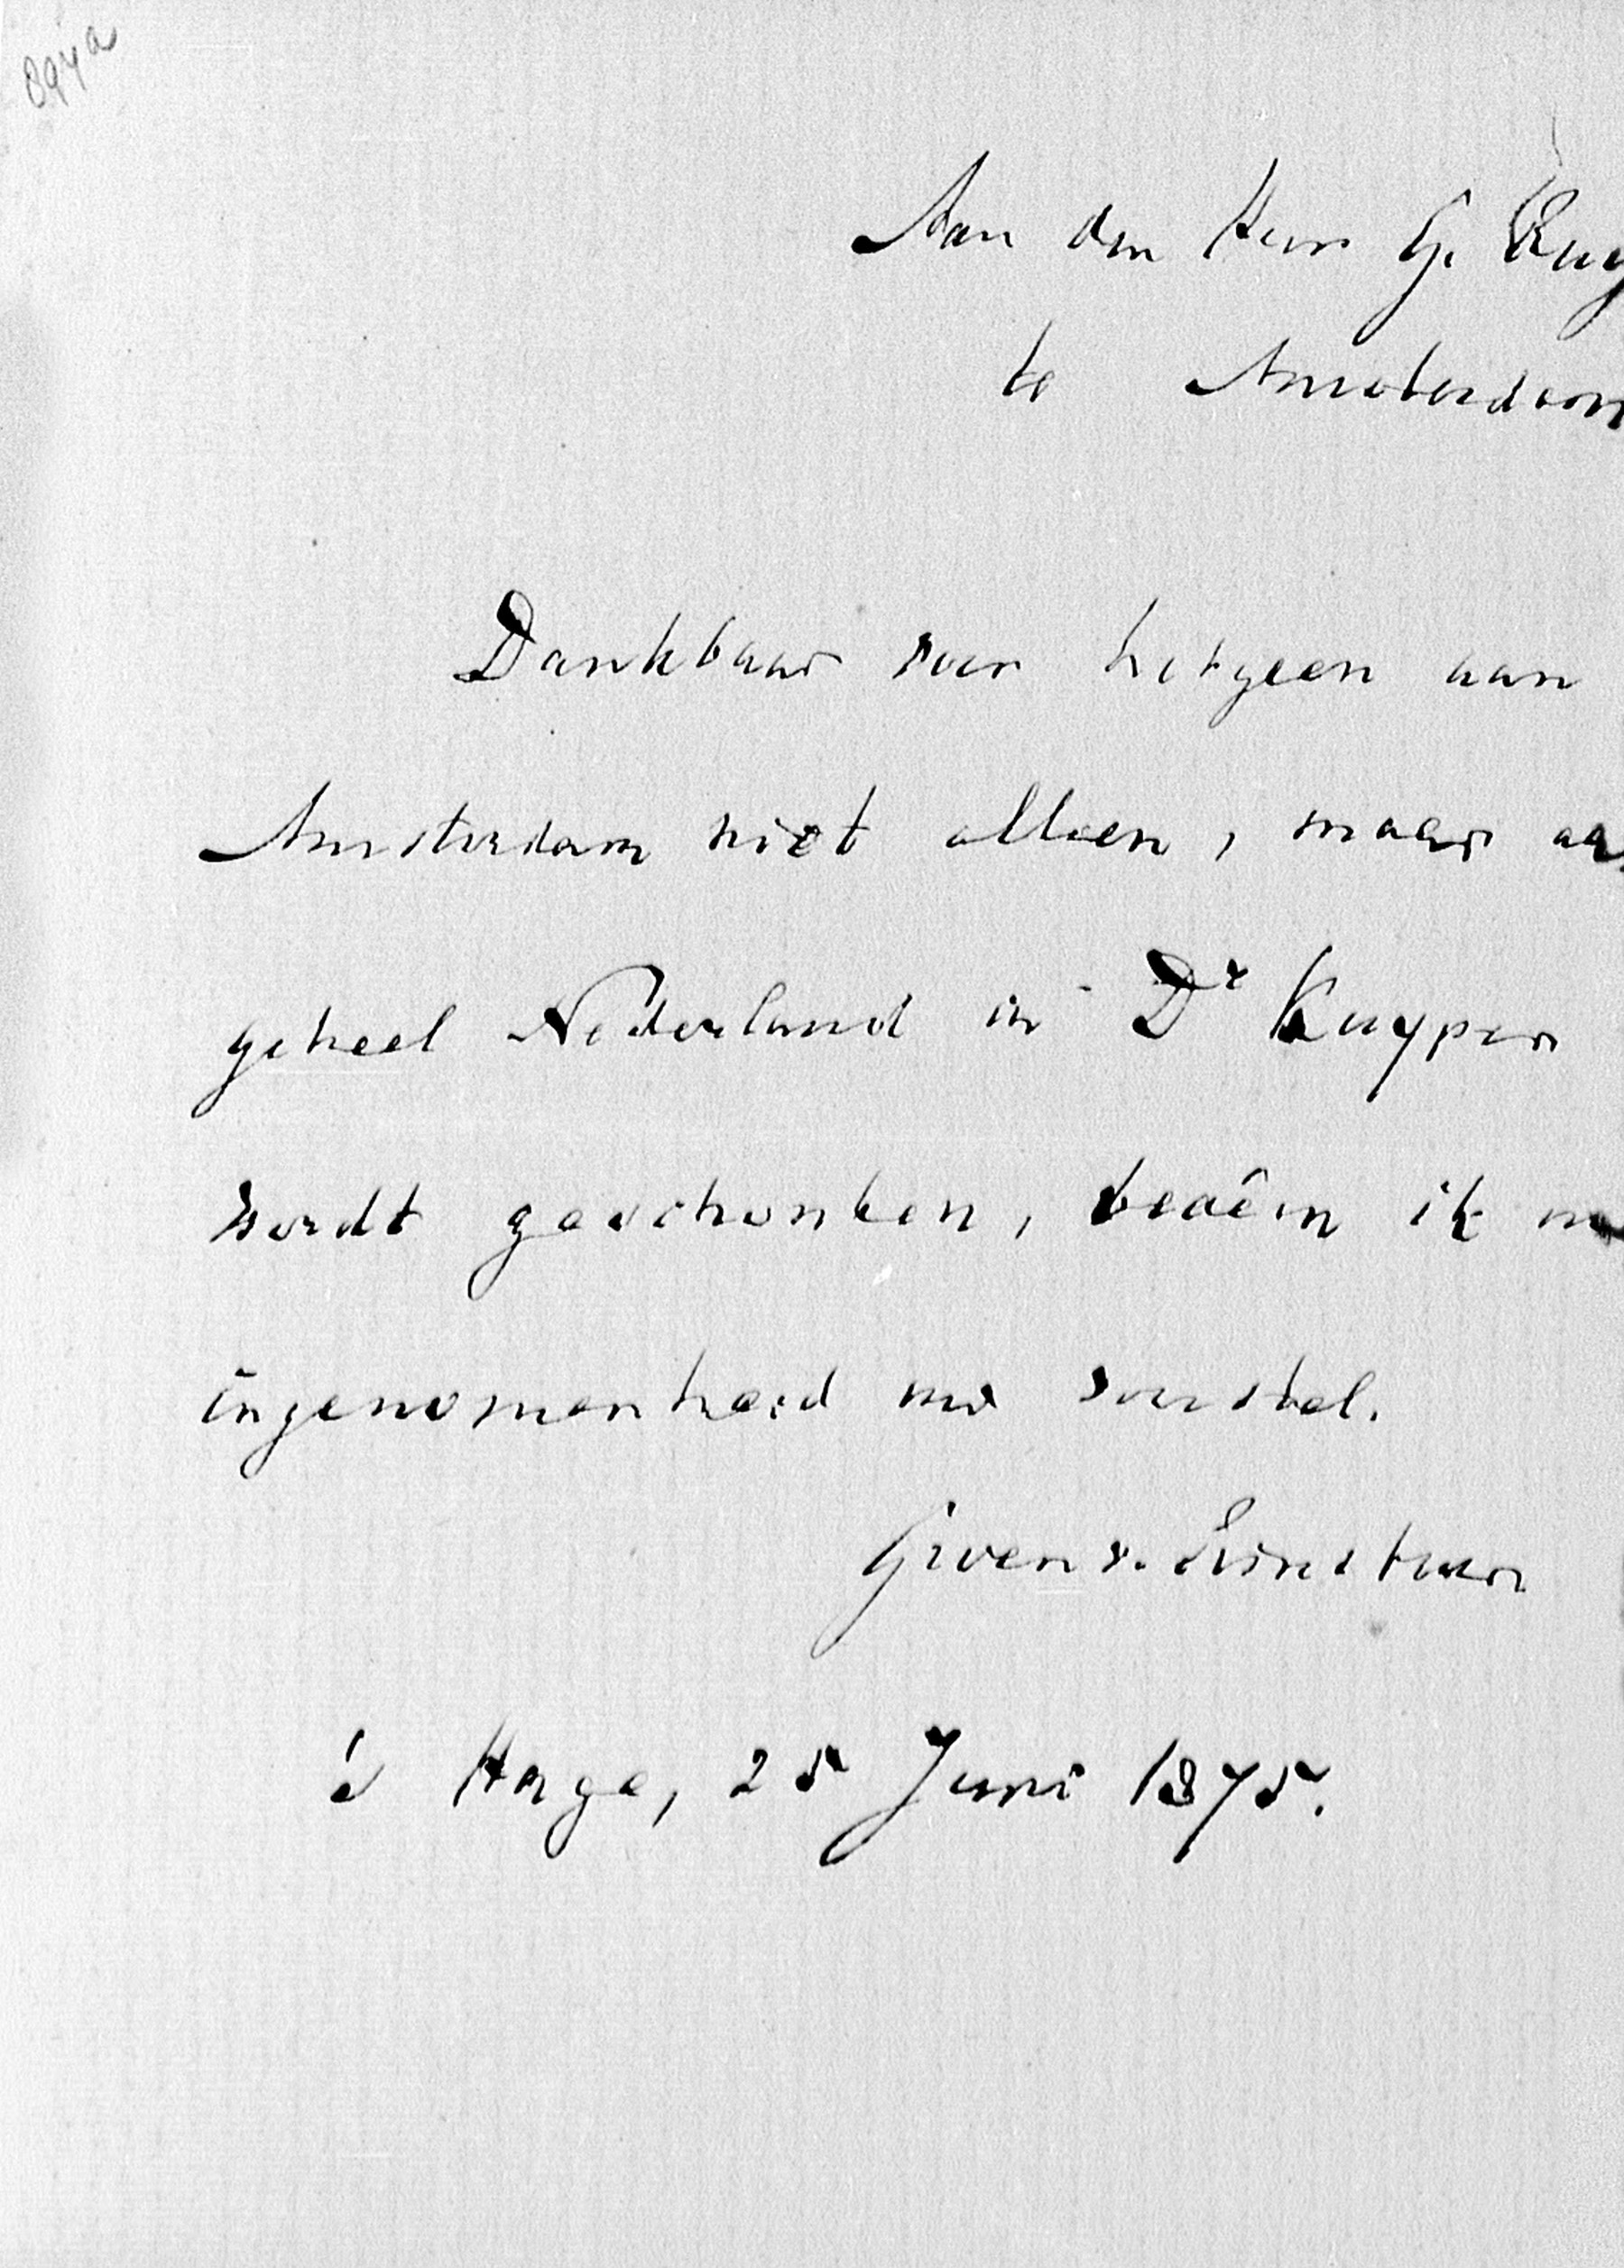 894a
Aan den Heer G. Ruy
te Amsterdam
Dankbaar voor hetgeen aan
Amsterdam niet alleen, maar aan
geheel Nederland in Dr Kuyper
wordt geschonken, beäem ik m
ingenomenheid mw voorstel.
Groen v. Prinsterer
's Hage, 25 Juni 1875.